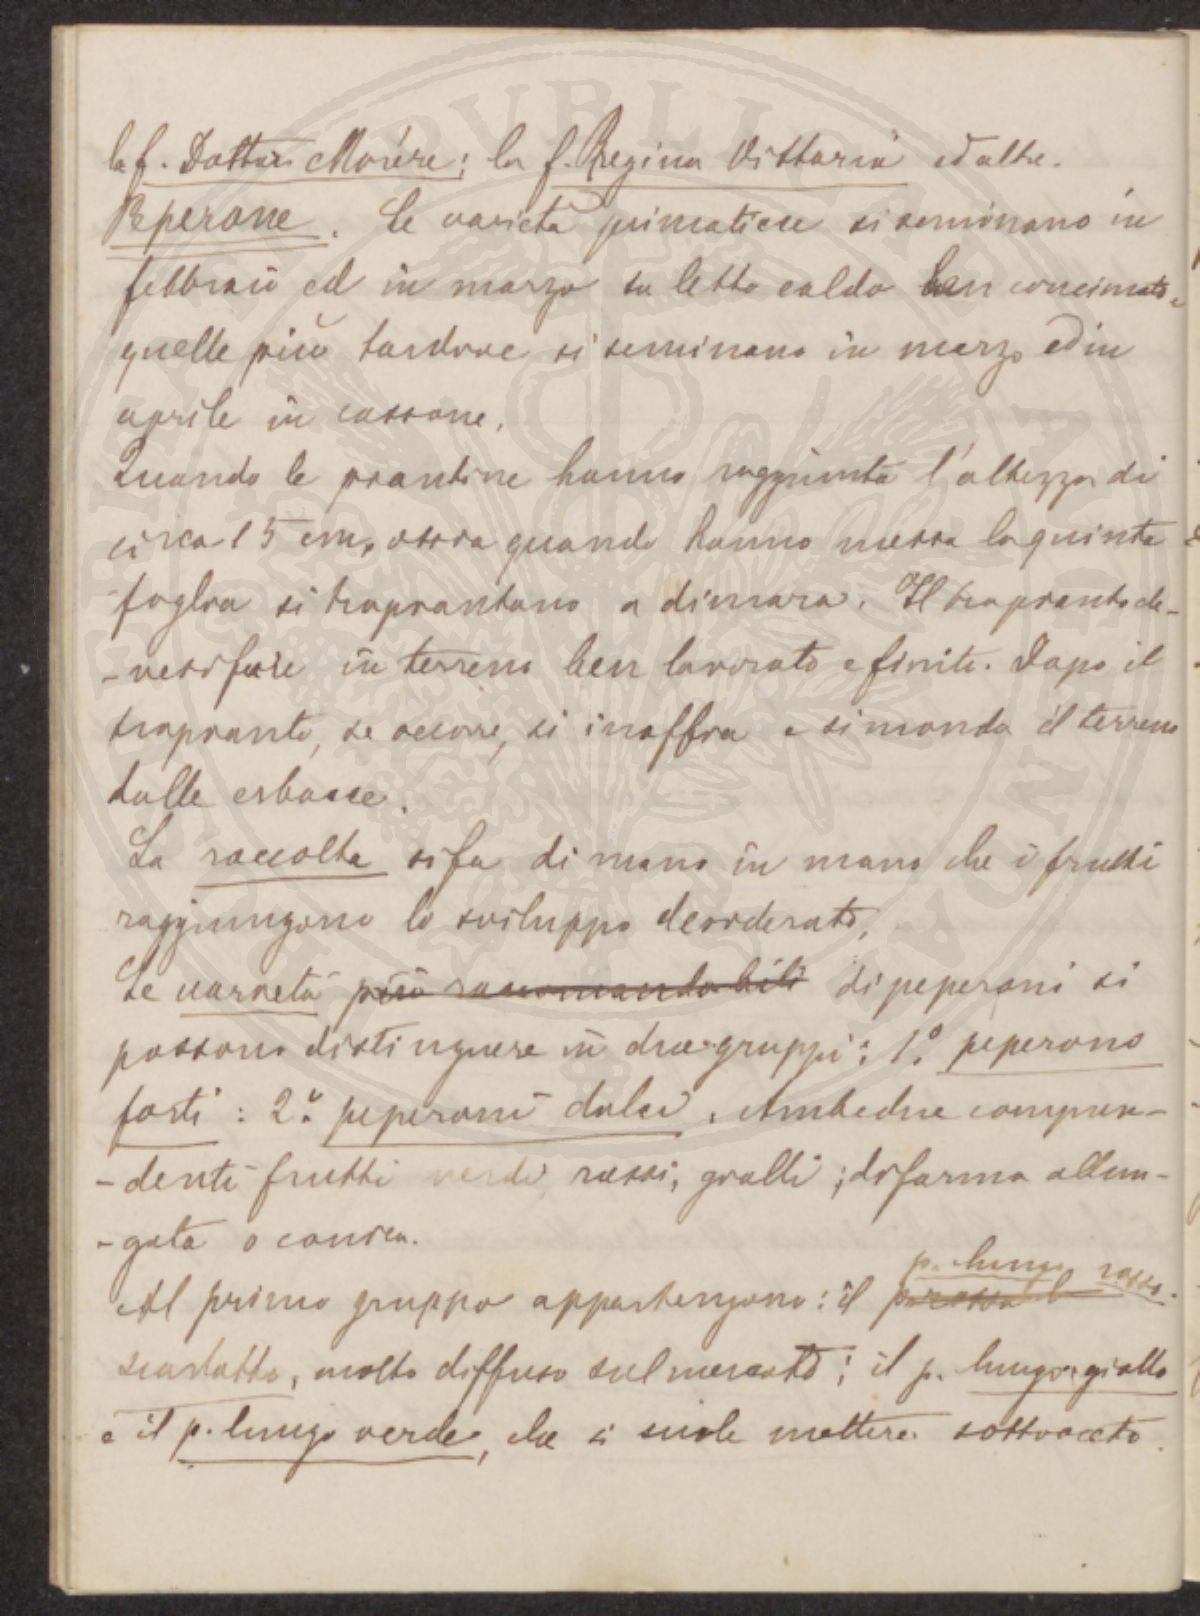 la f. Dottor Morère; la f. Regina Vittoria ed altre.
Peperone. Le varietà primaticce si seminano in
febbraio ed in marzo su letto caldo ben concimato,
quelle più tardive si seminano in marzo ed in
aprile in cassone.
Quando le piantine hanno raggiunta l'altezza di
circa 15 cm, ossia quando hanno messa la quinta
foglia si trapiantano a dimora. Il trapianto de-
-vesi fare in terreno ben lavorato e finito. Dopo il
trapianto, se occorre, si inaffia e si monda il terreno
dalle erbacce.
La raccolta si fa di mano in mano che i frutti
raggiungono lo sviluppo desiderato.
Le varietà più raccomandabili di peperoni si
possono distinguere in due gruppi: 1.° peperone
forti : 2.° peperoni dolci. Ambedue compren-
-denti frutti verdi, rossi, gialli; di forma allun-
-gata o conica.
p. lungo rosso
Al primo gruppo appartengono: il
scarlatto, molto diffuso sul mercato; il p. lungo giallo
e il p. lungo verde, che si suole mettere sottoaceto.